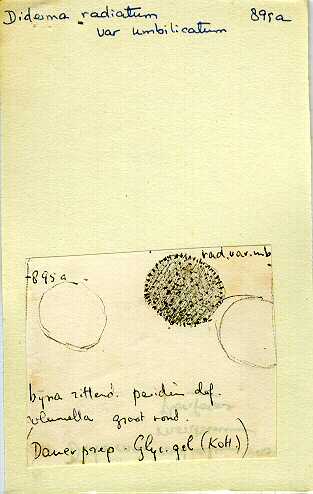 Diderma radiatum 895a
var umbilicatum
rad.var.mb
895a
byna zittend. peridin def.
columella groot rond.
(Dauerprep. Glyc. gel (Koth.)